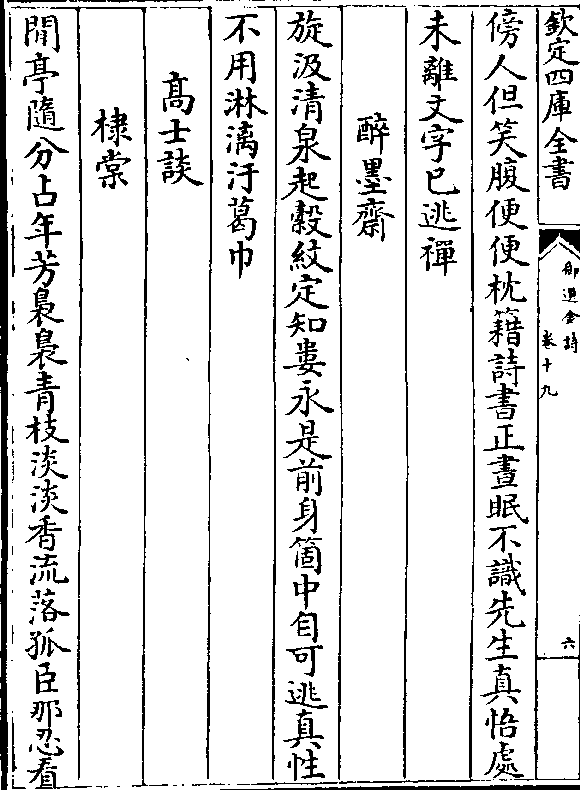 欽定四庫全書
御選金詩
卷十九
六
傍人但笑腹便便枕籍詩書正晝眠不識先生真悟處
未離文字已逃禪
醉墨齋
旋汲清泉起縠紋定知婁永是前身箇中自可逃真性
不用淋漓汙葛巾
高士談
棣棠
閒亭隨分占年芳裊裊青枝淡淡香流落孤臣那忍看